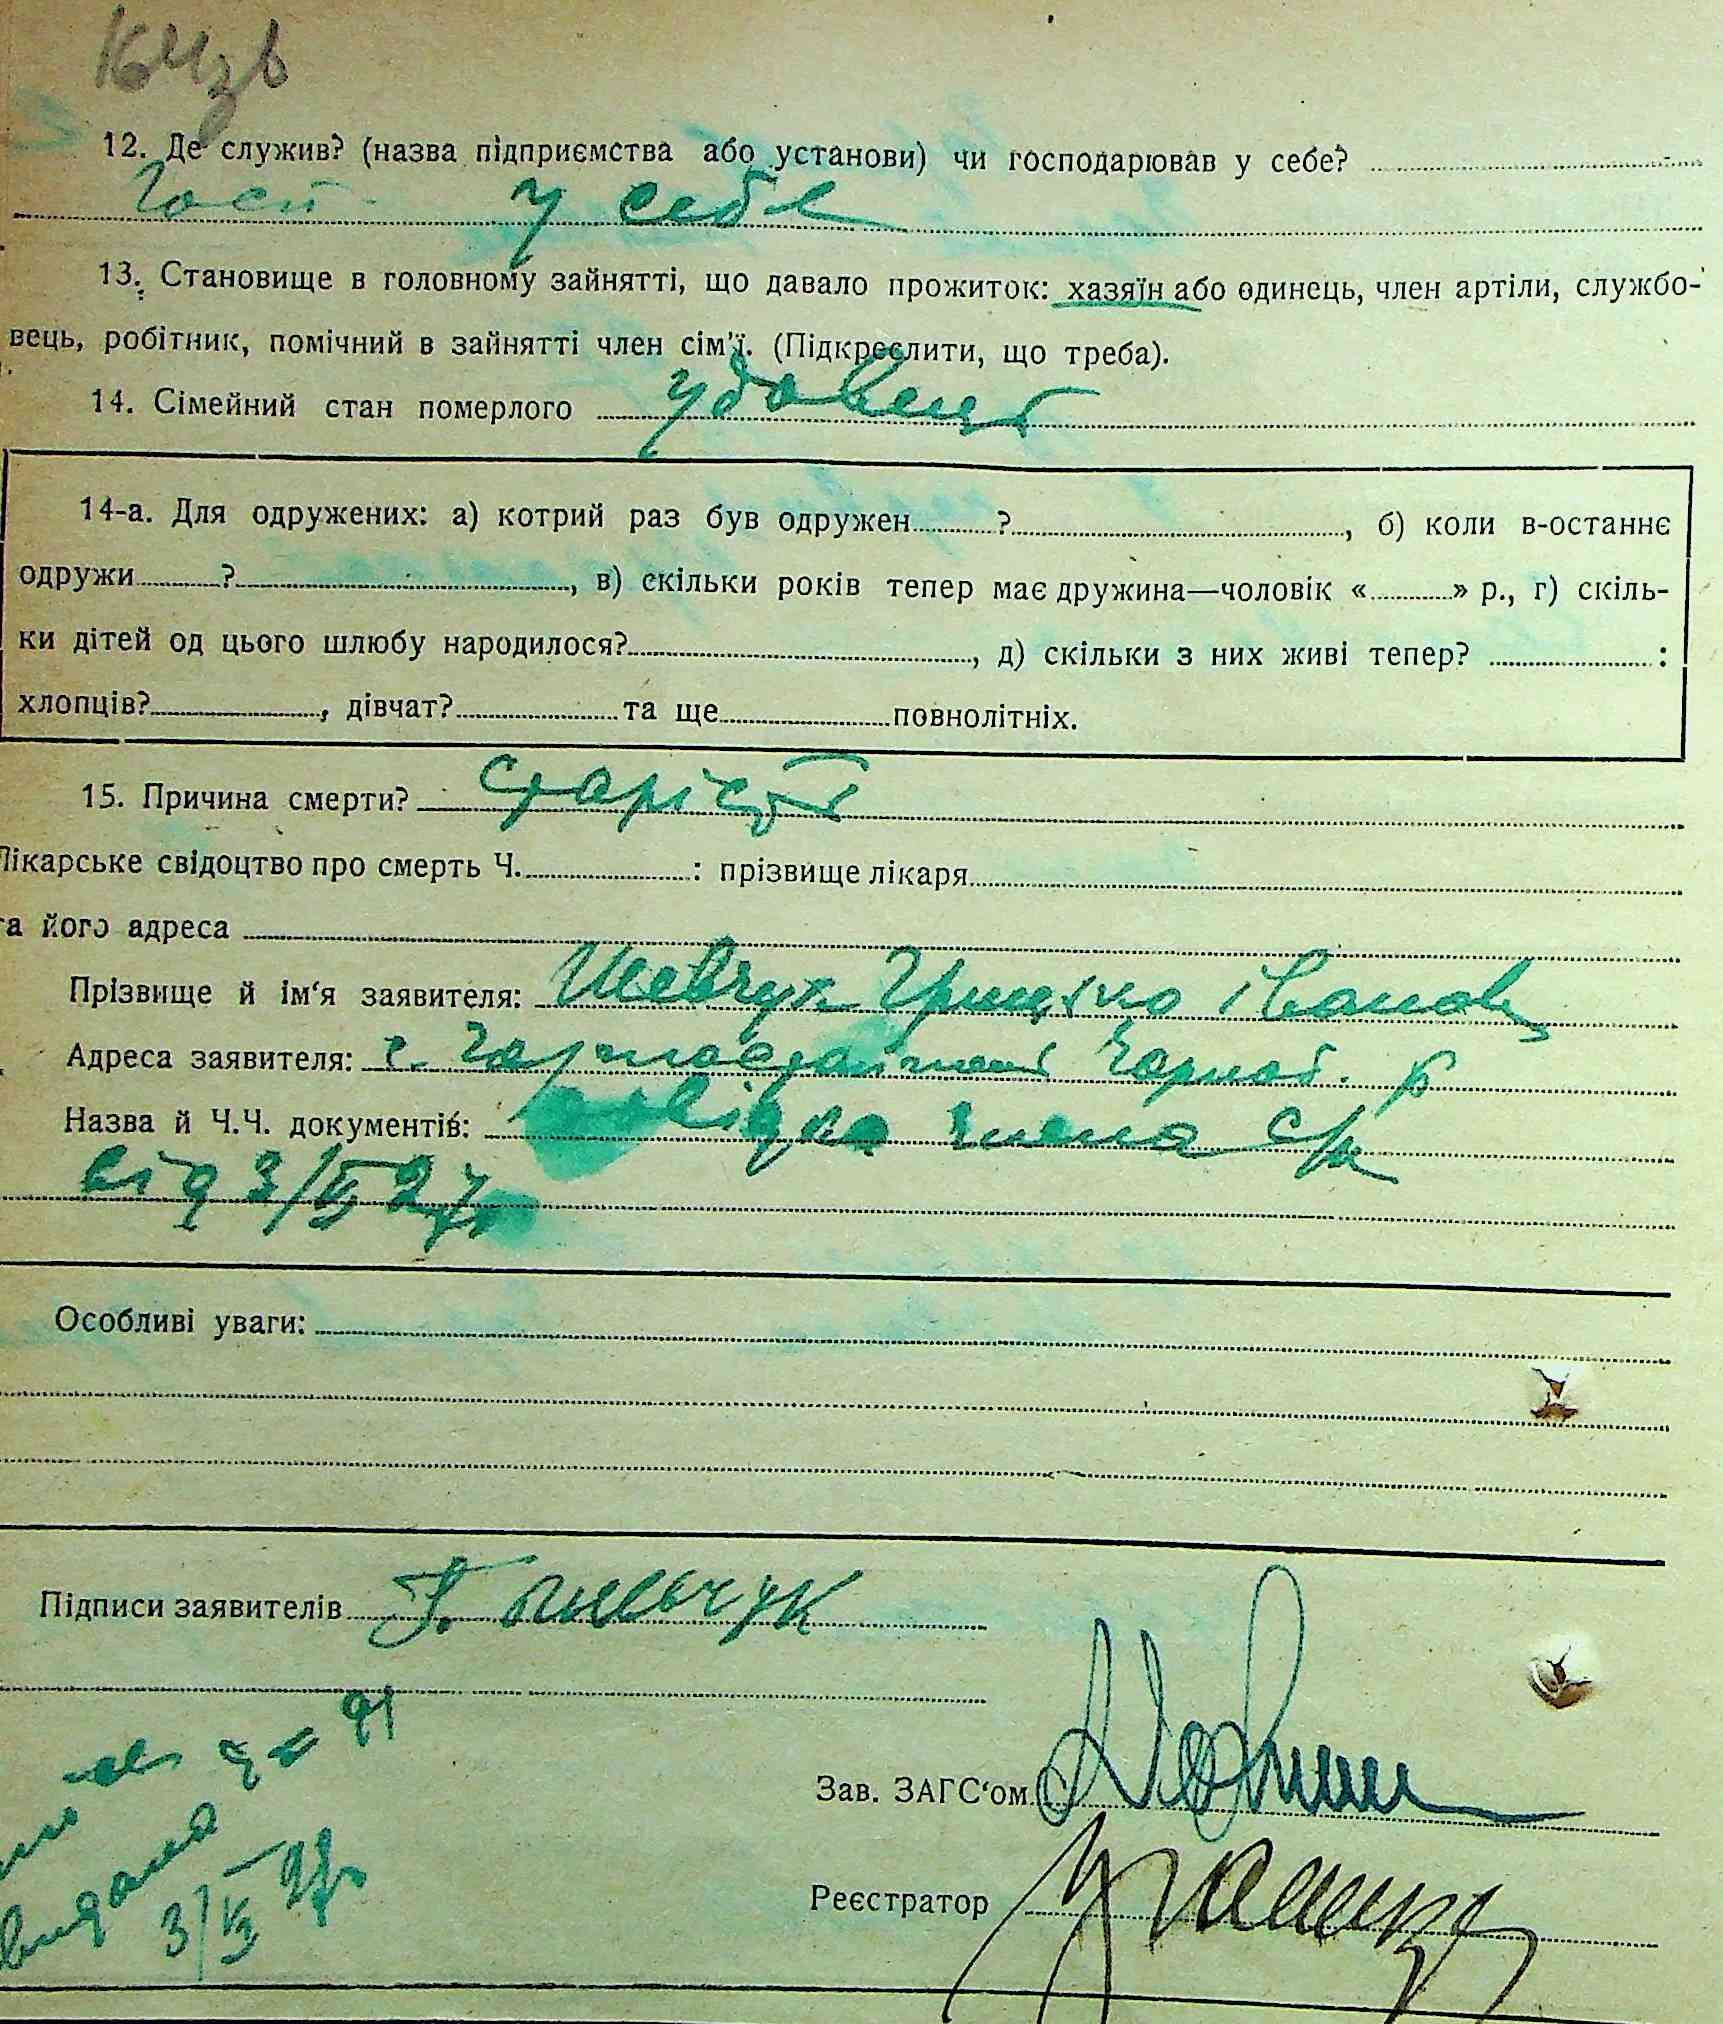 12. Де служив? (назва підприємства або установи) чи господарював у себе?
Госп. у себе
13. Становище в головному зайнятті, що давало прожиток: хазяїн або одинець, член артіли, службо-
вець, робітник, помічний в зайнятті член сім'ї. (Підкреслити, що треба).
14. Сімейний стан померлого удовець
14-а. Для одружених: а) котрий раз був одружен ? , б) коли в-останнє
одружи ? , в) скільки років тепер має дружина—чоловік « » р., г) скіль-
ки дітей од цього шлюбу народилося? , д) скільки з них живі тепер? :
хлопців? , дівчат? та ще повнолітніх.
15. Причина смерти? старість
Лікарське свідоцтво про смерть Ч. : прізвище лікаря
та його адреса
Прізвище й ім'я заявителя: Шевчук Грицько Іванов
Адреса заявителя: с. Чорноб. р
Назва й Ч.Ч. документів: посвідка члена с/р
від 3/ІХ 27р
Особливі уваги:
Підписи заявителів Г. Шевчук
91
Зав. ЗАГС'ом
видана
3/ІХ 27р
Реєстратор